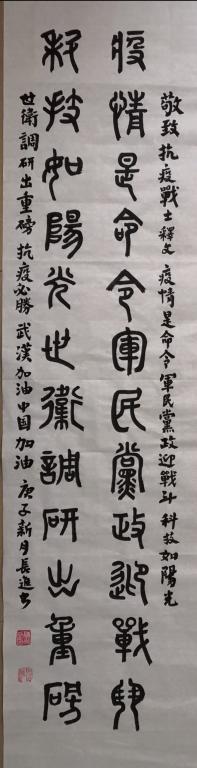 敬致抗疫戰士釋文 疫情是命令軍民黨政迎戰斗 科技如陽光
疫情是命令軍民黨政迎戰鬥
科技如陽光世衛調研出重磅
世衛調研出重磅 抗疫必勝 武漢加油中国加油 庚子新月長進書